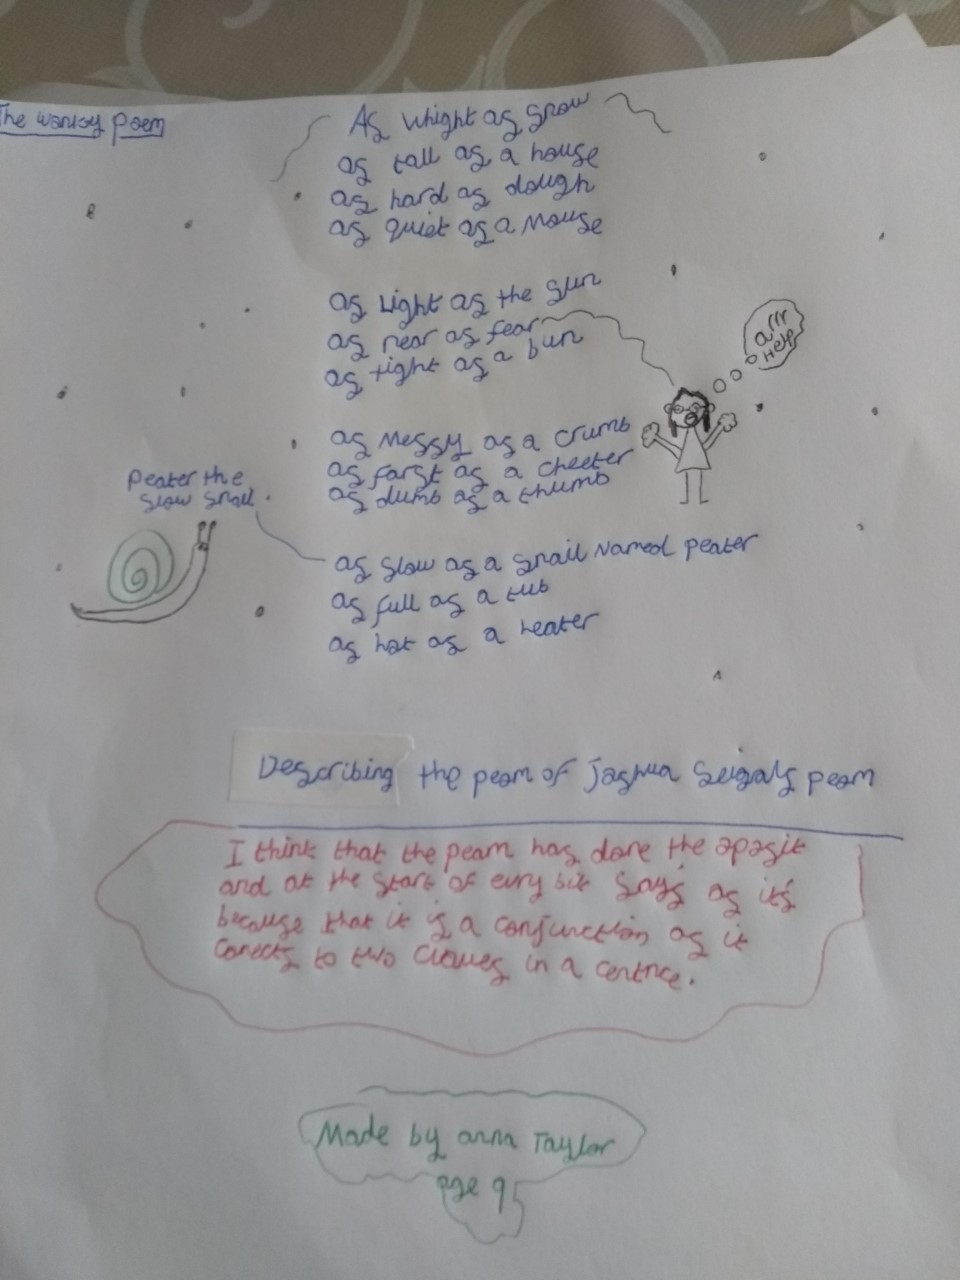 The wonky poem
As whight as snow
as tall as a house
as hard as dough
as quiet as a mouse
as Light as the sun
as near as fear
as tight as a bun
arrr
Help
as messy as a crumb
as farst as a cheeter
as dumb as a thumb
Peater the
slow snail.
as slow as a snail Named peater
as full as a tub
as hot as a heater
Describing the peom of Joshua Seigals peom
I think that the peom has done the oposit
and at the start of evry bit says as it's
because that it is a conjunction as it
conects to two clowes in a centnce.
Made by anna Taylor
age 9